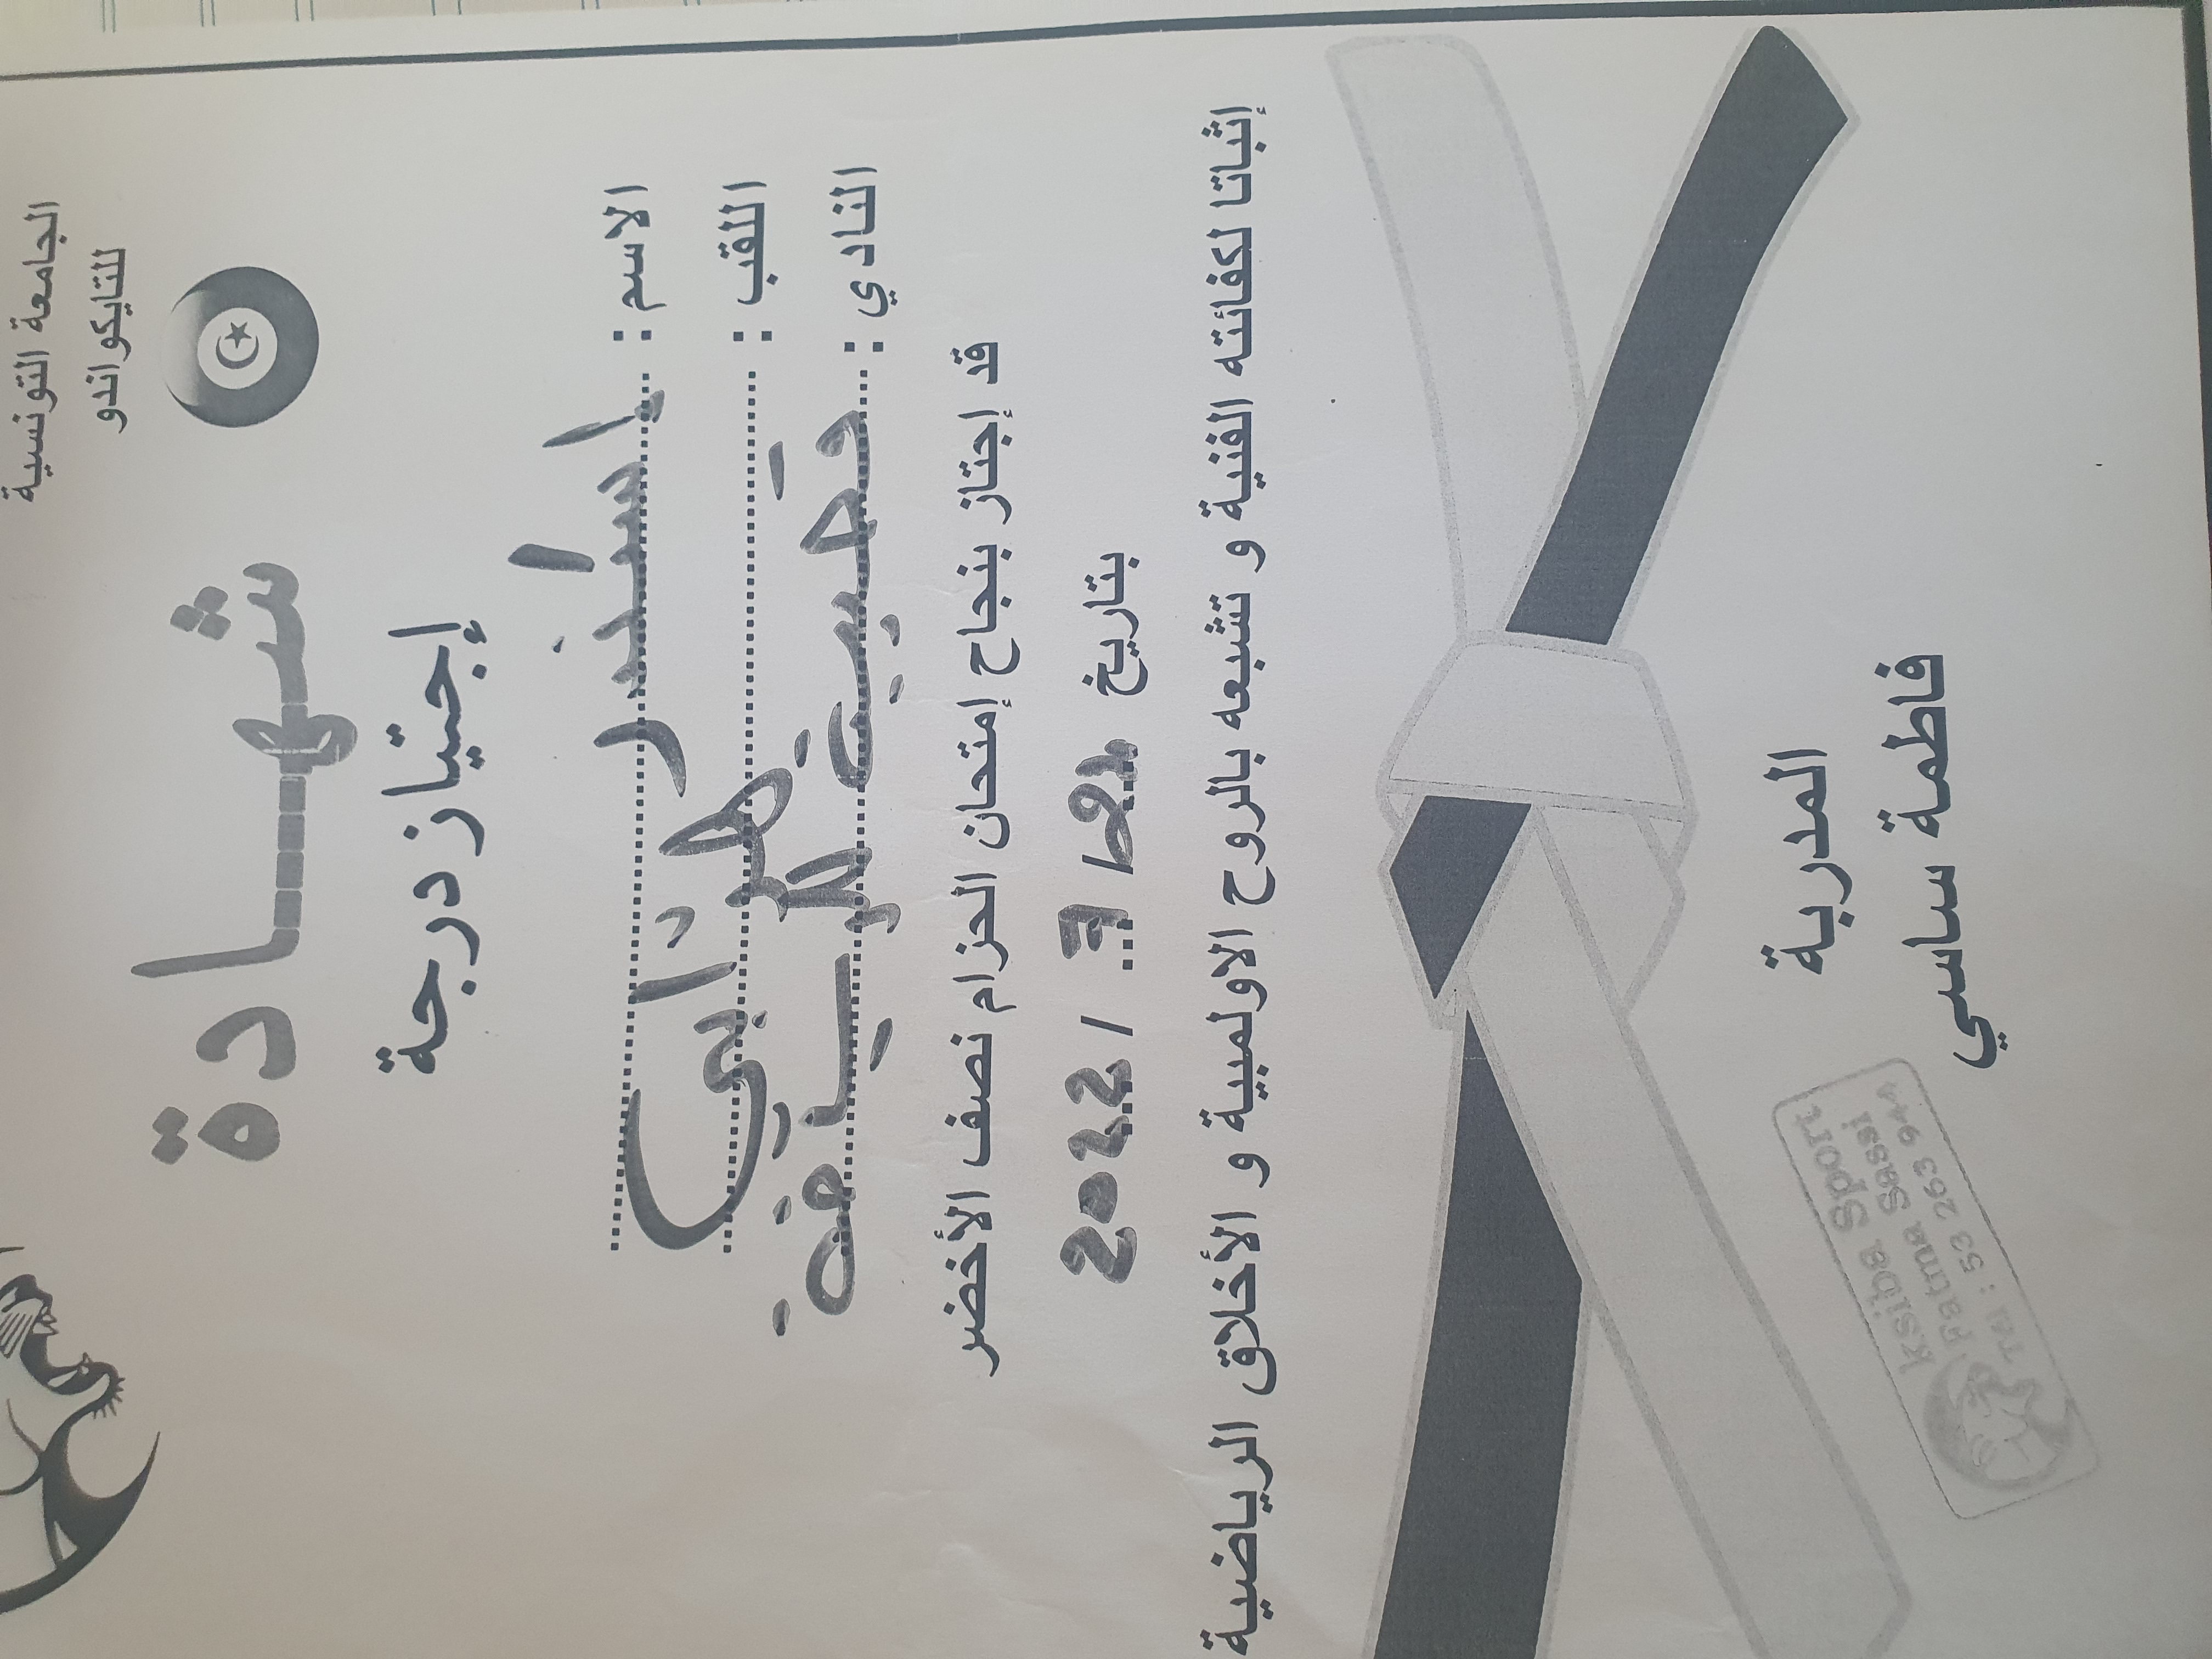 الجامعة التونسية
للتايكواندو
شهادة
إجتياز درجة
الاسم :
اللقب : طرابلسي
النادي : قصيبة الرياضية
قد إجتاز بنجاح إمتحان الحزام نصف الأخضر
بتاريخ / 7 / 2022
إثباتا لكفائته الفنية و تشبعه بالروح الاولمبية و الأخلاق الرياضية
المدربة
فاطمة ساسي
Ksiba Sport
Fatma Sassi
Tél : 53 263 944